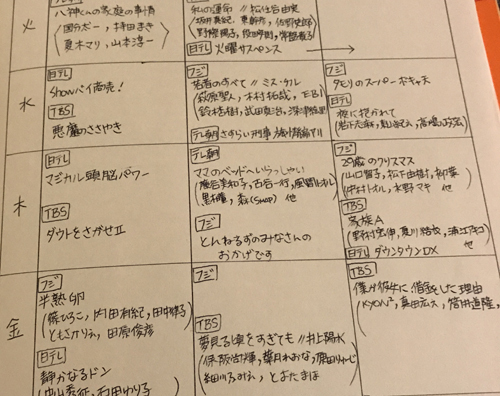 火
八神くんの家庭の事情
夏木マリ, 山本淳一
私の運命 // 松任谷由実
(坂井真紀, 東幹久, 佐野史郎
野際陽子, 段田安則, 常盤貴子)
日テレ 火曜サスペンス →
水
日テレ
Showバイ商売!
TBS
悪魔のささやき
フジ
若者のすべて // ミスチル
(萩原聖人, 木村拓哉, EBI
鈴木杏樹, 武田真治, 深津絵里
テレ朝 さすらい刑事
フジ
タモリのスーパーボキャ天
日テレ
夜に抱かれて
木
日テレ
マジカル頭脳パワー
TBS
ダウトをさがせII
テレ朝
ママのベッドへいらっしゃい
古谷一行, 風間トオル
森(SMAP) 他
フジ
とんねるずのみなさんの
おかげです
フジ
29歳のクリスマス
(山口智子, 松下由樹, 柳葉
中村トオル, 水野マキ 他
TBS
家族A
日テレ ダウンタウンDX
金
フジ
半熟卵
(篠ひろこ, 内田有紀, 田中律子
ともさかりえ, 田原俊彦
日テレ
静かなるドン
(中山秀征, 石田ゆり子
フジ
TBS
夢見る頃をすぎても // 井上陽水
(保阪尚輝, 葉月里緒菜, 原田
細川ふみえ, とよたまほ
TBS
僕が彼女に借金をした理由
(KYON², 真田広之, 筒井道隆,